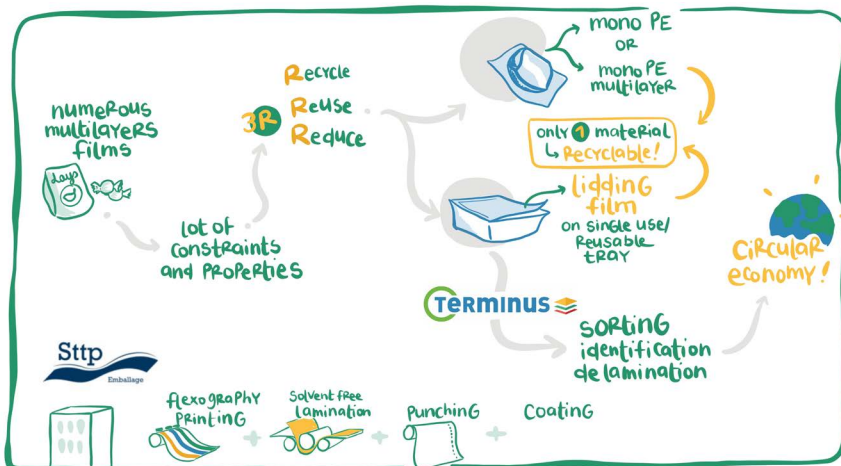 numerous
multilayers
films
Lays
lot of
constraints
and properties
3R
Recycle
Reuse
Reduce
mono PE
OR
mono PE
multilayer
only 1 material
Recyclable!
lidding
film
on single use/
Reusable
tray
TERMINUS
sorting
identification
delamination
circular
economy!
Sttp
Emballage
flexography
printing
+
Solvent free
lamination
+
Punching
+
Coating